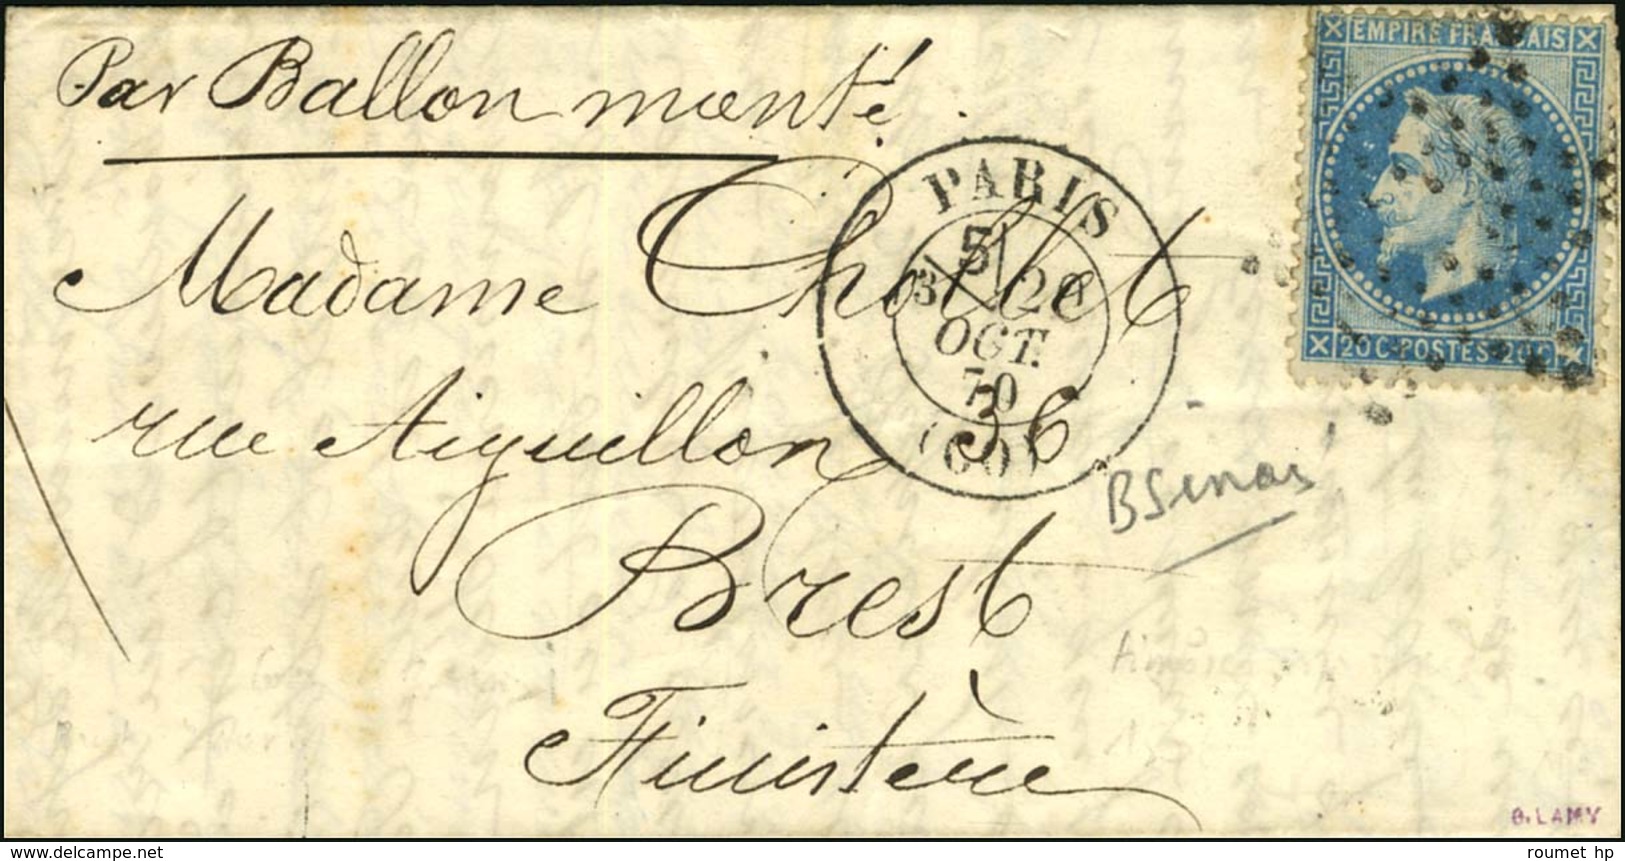 Par Ballon monté.
EMPIRE FRANÇAIS
20 C POSTES 20 C
PARIS
5
3 28
OCT.
70
(60)
Madame Chollet
rue Aiguillon 36
Brest
Finistère
B. LAMY
delcampe.net
roumet hp